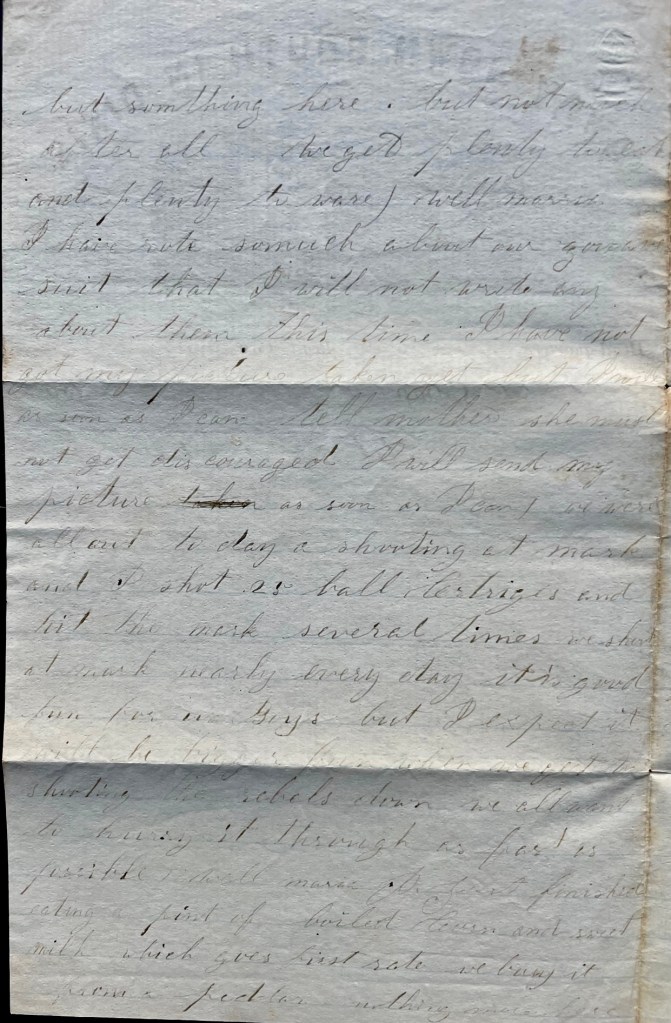 but somthing here . but not much
after all we get plenty to eat
and plenty to ware) well marria
I have rote somuch about our
suit that I will not write any
about them this time I have not
got my picture taken yet but I will
as soon as I can tell mother she must
not get discouraged I will send my
picture taken as soon as I can) we were
all out to day a shooting at mark
and I shot 25 ball and
hit the mark several times we shoot
at mark nearly every day it is good
fun for us Boys but I expect it
will be fun when we get to
shooting the rebels down we all want
to hurry it through as fast as
possible) well maria just finished
eating a pint of boiled and sweet
milk which goes first rate we buy it
from a pedlar nothing more here